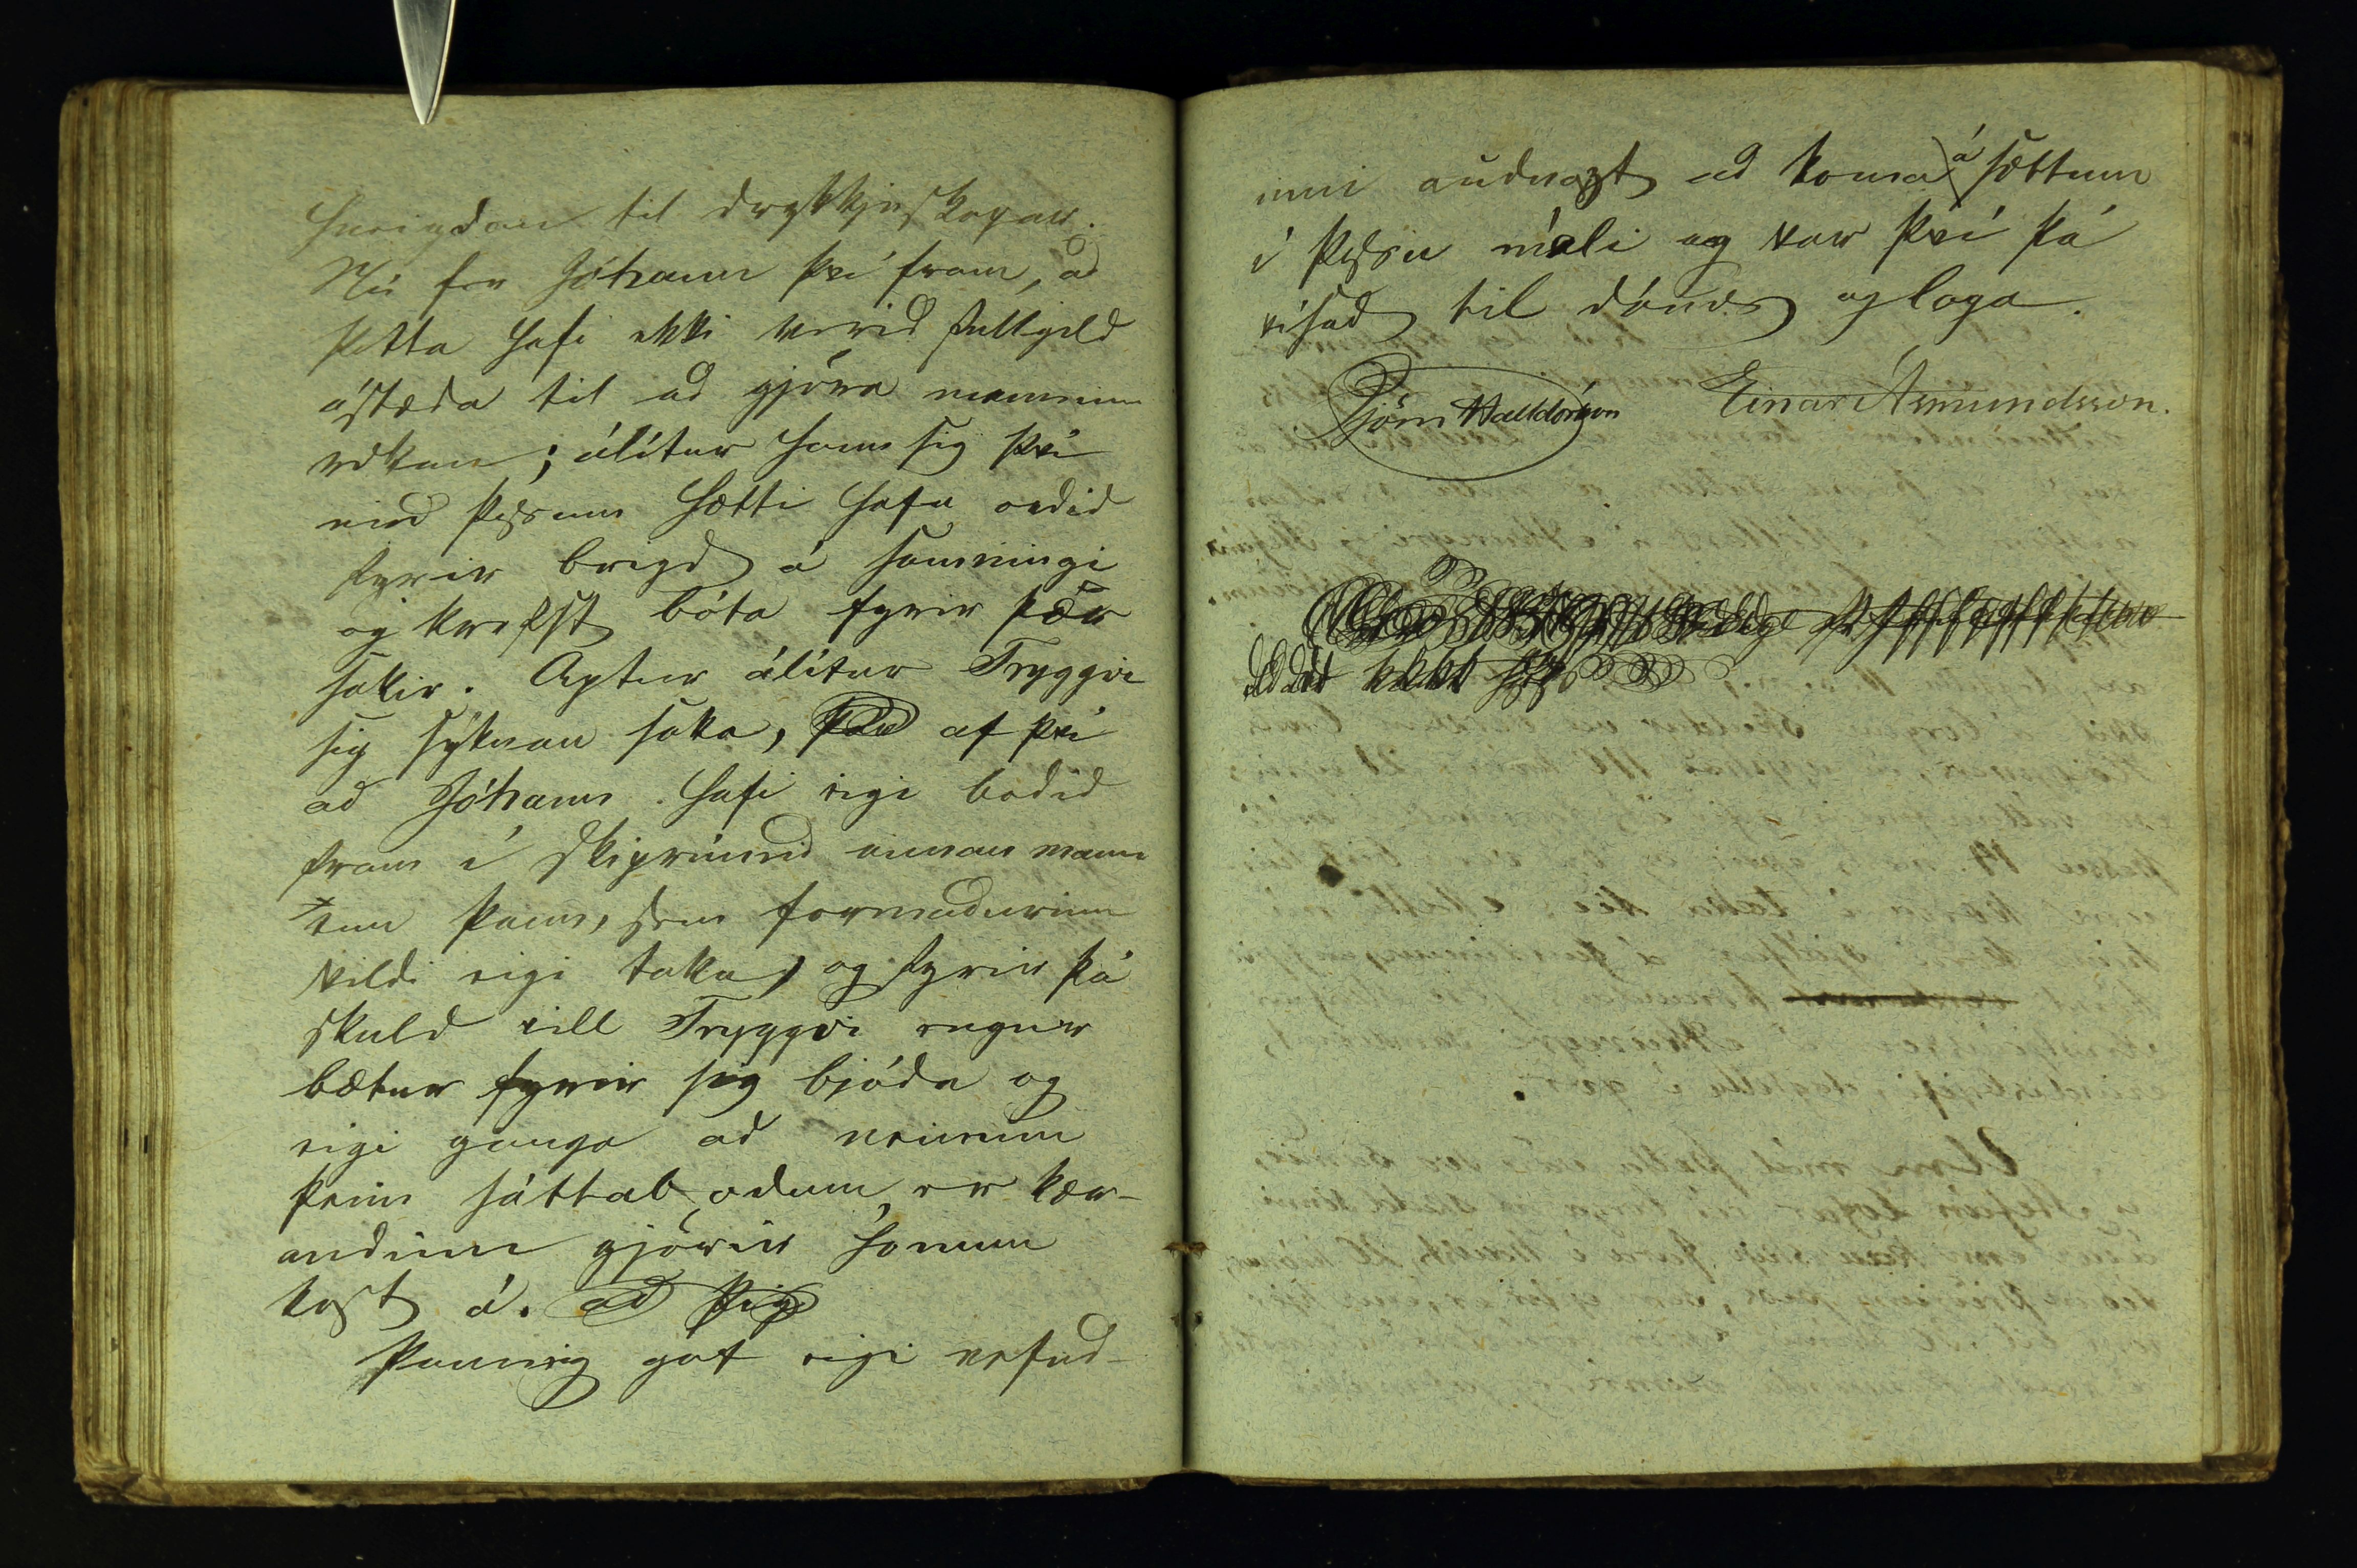 hneigdan til drykkjuskapar.
Nú fer Jóhann því fram, ad
þetta hafi ekki verid fullgild
ástæda til ad gjöra manninn
rækan; álítur hann sig því
med þessum hætti hafa ordid
fyrir brigd á samningi
og krefst bóta fyrir þær
sakir. Aptur álítur Tryggvi
sig sýknan saka, af því
ad Jóhann hafi eigi bodid
fram í skiprúmid annan mann
enn þann, sem formadurinn
vildi eigi taka, og fyrir þá
skuld vill Tryggvi engar
bætur fyrir sig bjóda og
eigi ganga ad neinum
þeim sáttabodum, er kær-
andinn gjörir honum
kost á. ad þigg
Þannig gat eigi nefnd-
inni audnazt ad koma á sættum
í þessu máli og var því þá
vísad til dóms og laga.
Björn Halldórsson Einar Ásmundsson.